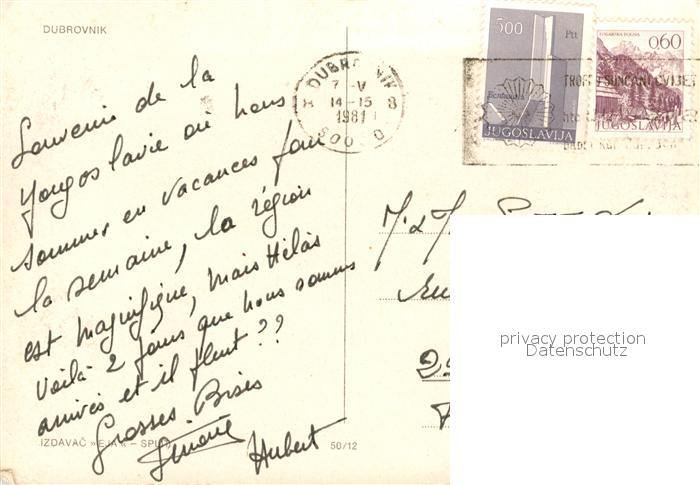 DUBROVNIK
Souvenir de la
Yougoslavie où nous
sommes en vacances pour
la semaine, la région
est magnifique, mais Hélas
voilà 2 jours que nous sommes
arrivés et il pleut ??
Grosses Bises
Simone
Hubert
IZDAVAČ »EJA« – SPLIT
50/12
DUBROVNIK
7 - V
8 14-15 8
1981
5,00
Ptt
JUGOSLAVIJA
LOGARSKA DOLINA
0,60
JUGOSLAVIJA
M. & M
privacy protection
Datenschutz